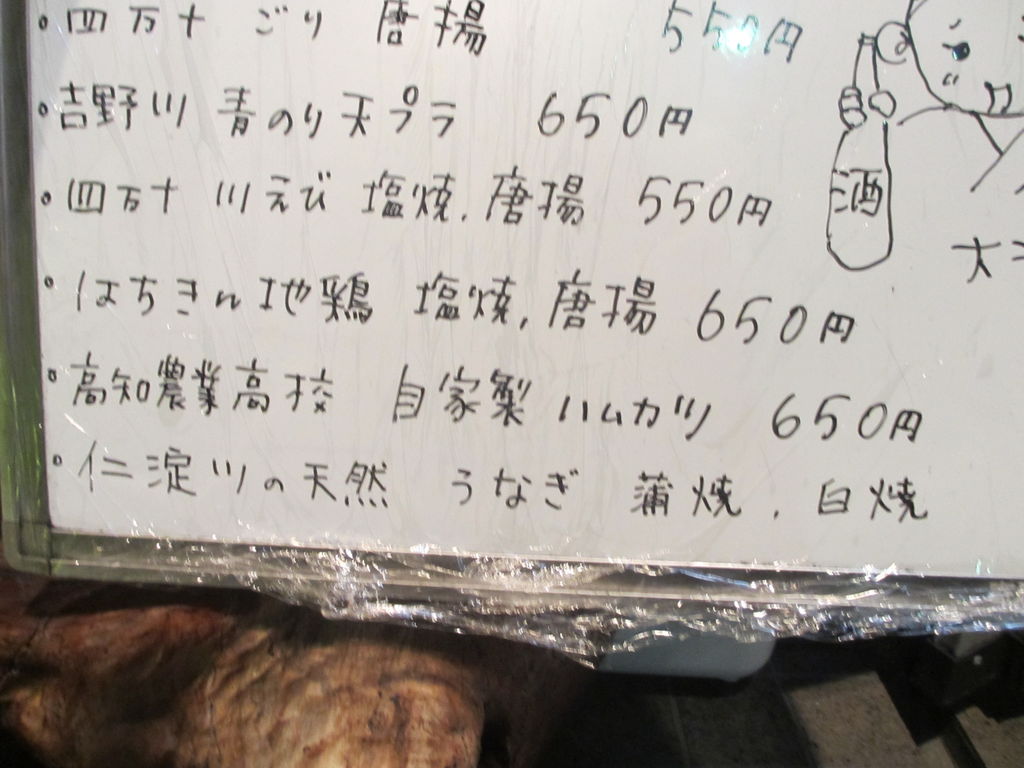 ・四万十 ごり 唐揚 550円
・吉野川 青のり天プラ 650円
・四万十 川えび 塩焼,唐揚 550円
酒
・はちきん地鶏 塩焼,唐揚 650円
・高知農業高校 自家製 ハムカツ 650円
・仁淀川の天然 うなぎ 蒲焼,白焼